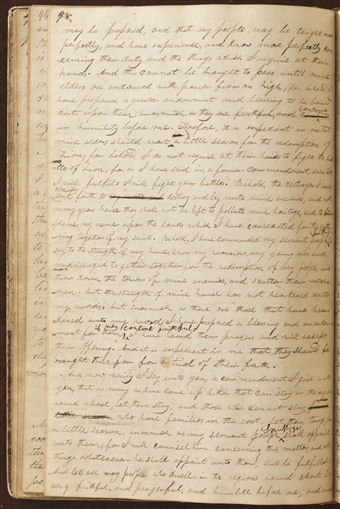 98.
may be prepared, and that my people, may be taught more
perfectly, and have experience, and know more perfectly con
cerning their duty and the things which I require at their
hand. And this cannot be brought to pass until mine
elders are endowed with power from on high; for behold, I
have prepared a greater endowment and blessing to be poured
out upon them, inasmuch as they are faithful, and continue
in humility before me. Therefore, it is expedient in me that
mine elders should wait a little season for the redemption of
Zion; for behold, I do not require at their hand to fight the bat
tles of Zion; for as I have said in a former commandment, even so
I will fulfil: I will fight your battles. Behold, the destroyer I have
sent forth to destroy and lay waste mine enemies, and not
many years hence they shall not be left to pollute mine heritage, and to blas
pheme my name upon the lands which I have consecrated for the gathe
ring together of my saints. Behold, I have commanded my servant
to say to the strength of my house, even my warriors, my young men and
middle aged to gather together for the redemption of my people, and
throw down the towers of mine enemies, and scatter their watch
men; but the strength of mine house has not hearkened unto
my words: but inasmuch as there are those that have hear
kened unto my word, I have prepared a blessing and an endow
ment for them, if they continue faithful. I have heard their prayers and will accept
their offering. And it is expedient in me that they should be
brought thus far, for a trial of their faith.
And now verily I say unto you, a commandment I give unto
you, that as many as have come up hither that can stay in the region
round about, let them stay, and those who cannot stay
who have families in the east, let them tarry for
a little season, inasmuch as my servant Joseph shall appoint
unto them; for I will counsel him concerning this matter, and all
things whatsoever he shall appoint unto them, shall be fulfilled.
And let all my people who dwell in the regions round about be
very faithful, and prayerful, and humble before me, and